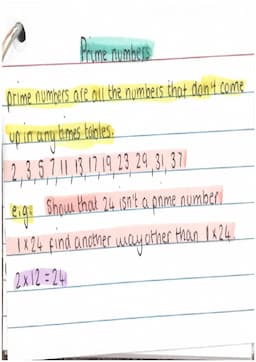 Prime numbers
prime numbers are all the numbers that don't come
up in any times tables.
2, 3, 5, 7, 11, 13, 17, 19, 23, 29, 31, 37
e.g. Show that 24 isn't a prime number
1 x 24 find another way other than 1 x 24.
2 x 12 = 24